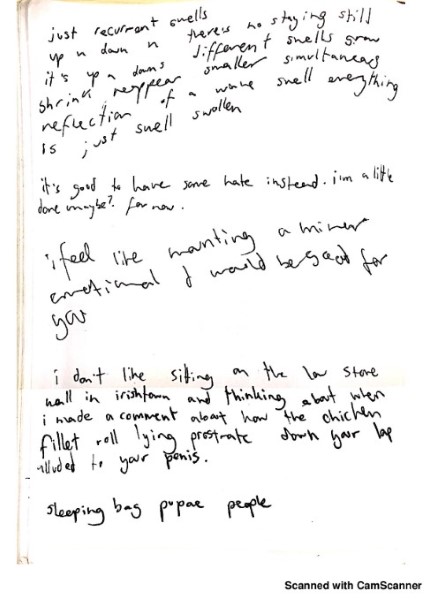 just recurrent swells
up n down n theres no staying still
it's up n downs different swells grow
shrink reappear smaller simultaneous
reflection of a wave swell everything
is just swell swollen
it's good to have some hate instead. i'm a little
done maybe? for now.
i feel like wanting a minor
emotional I would be good for
you
i don't like sitting on the low stone
wall in irishtown and thinking about when
i made a comment about how the chicken
fillet roll lying prostrate down your lap
alluded to your penis.
sleeping bag pupae people
Scanned with CamScanner